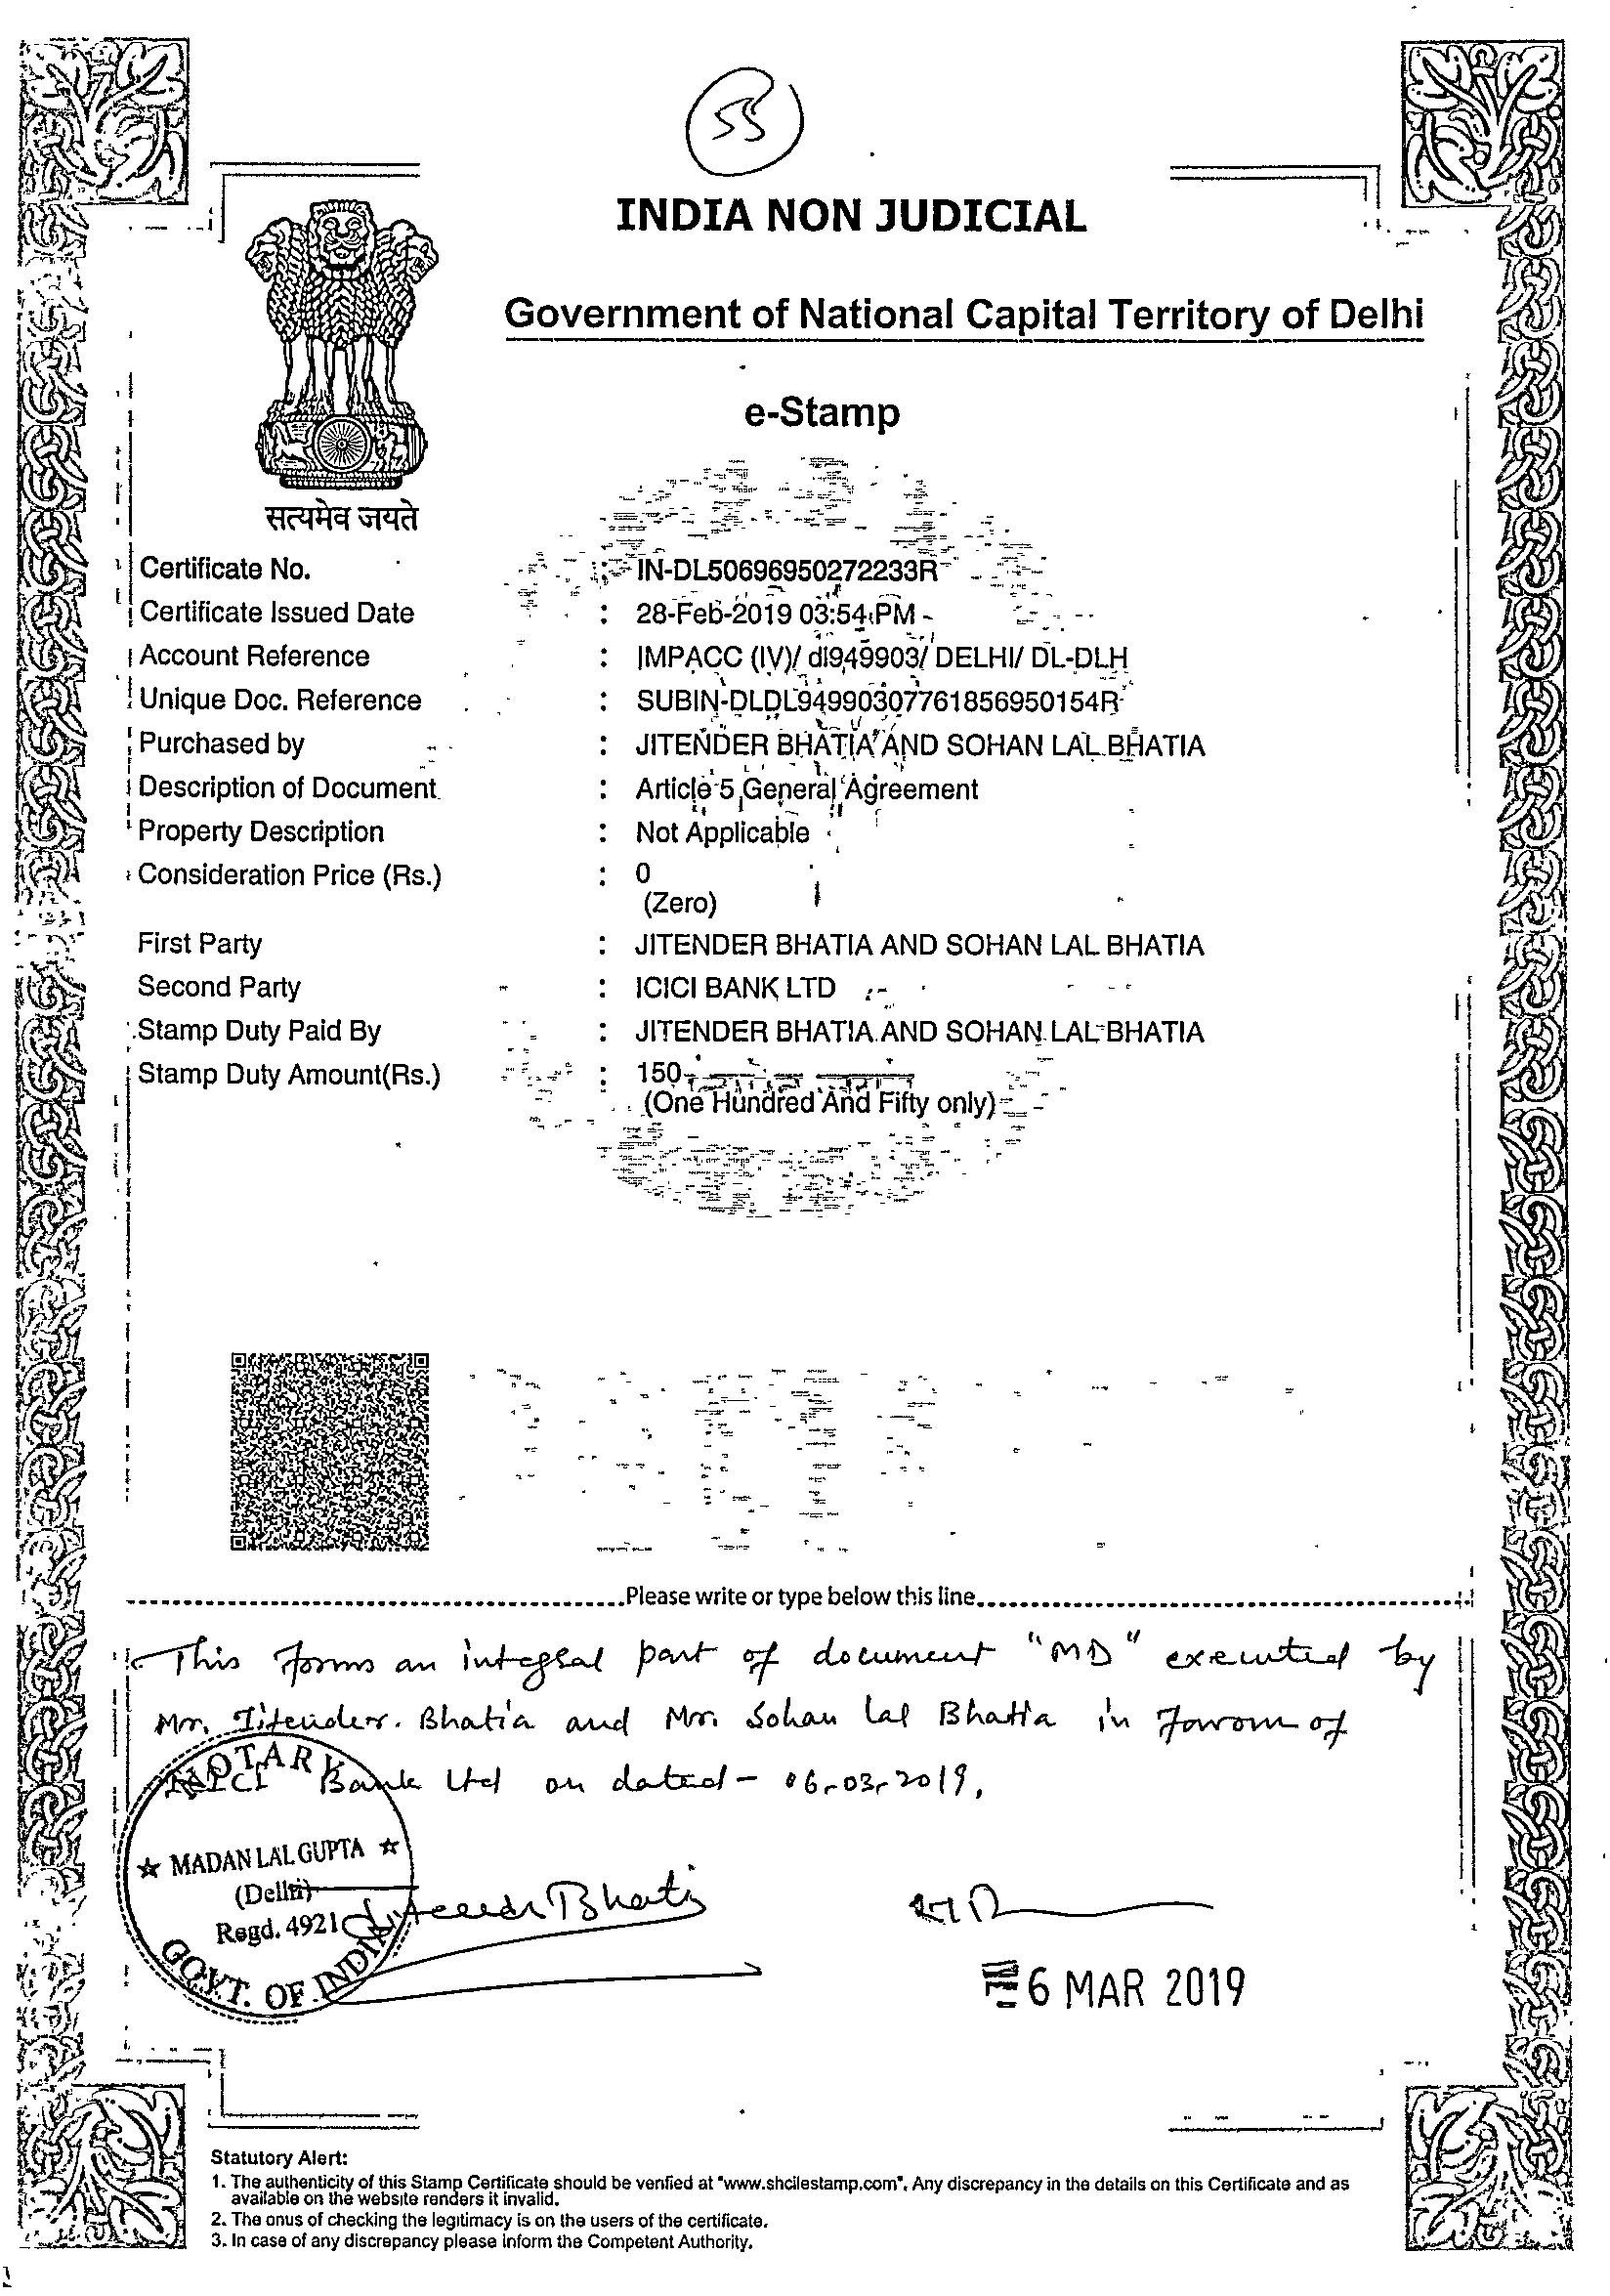 55
INDIA NON JUDICIAL
Government of National Capital Territory of Delhi
e-Stamp
सत्यमेव जयते
Certificate No. : IN-DL50696950272233R
Certificate Issued Date : 28-Feb-2019 03:54 PM
Account Reference : IMPACC (IV)/ dl949903/ DELHI/ DL-DLH
Unique Doc. Reference : SUBIN-DLDL94990307761856950154R
Purchased by : JITENDER BHATIA AND SOHAN LAL BHATIA
Description of Document : Article 5 General Agreement
Property Description : Not Applicable
Consideration Price (Rs.) : 0
(Zero)
First Party : JITENDER BHATIA AND SOHAN LAL BHATIA
Second Party : ICICI BANK LTD
Stamp Duty Paid By : JITENDER BHATIA AND SOHAN LAL BHATIA
Stamp Duty Amount(Rs.) : 150
(One Hundred And Fifty only)
Please write or type below this line
This forms an integral part of document "MD" executed by
Mr. Jitender. Bhatia and Mr. Sohan lal Bhatia in favour of
ICICI Bank Ltd on dated - 06-03-2019.
NOTARY
MADAN LAL GUPTA
(Delhi)
Regd. 4921
GOVT. OF INDIA
Jitender Bhatia
6 MAR 2019
Statutory Alert:
1. The authenticity of this Stamp Certificate should be verified at "www.shcilestamp.com". Any discrepancy in the details on this Certificate and as
available on the website renders it invalid.
2. The onus of checking the legitimacy is on the users of the certificate.
3. In case of any discrepancy please inform the Competent Authority.